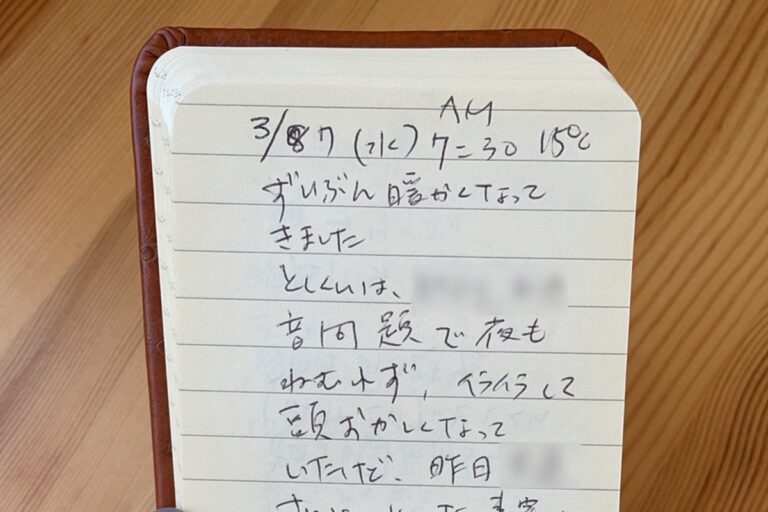 AM
3/7 (水) 7=30 15℃
ずいぶん暖かくなって
きました
とくいは、
音問題で夜も
ねむれず、イライラして
頭おかしくなって
いたけど、昨日